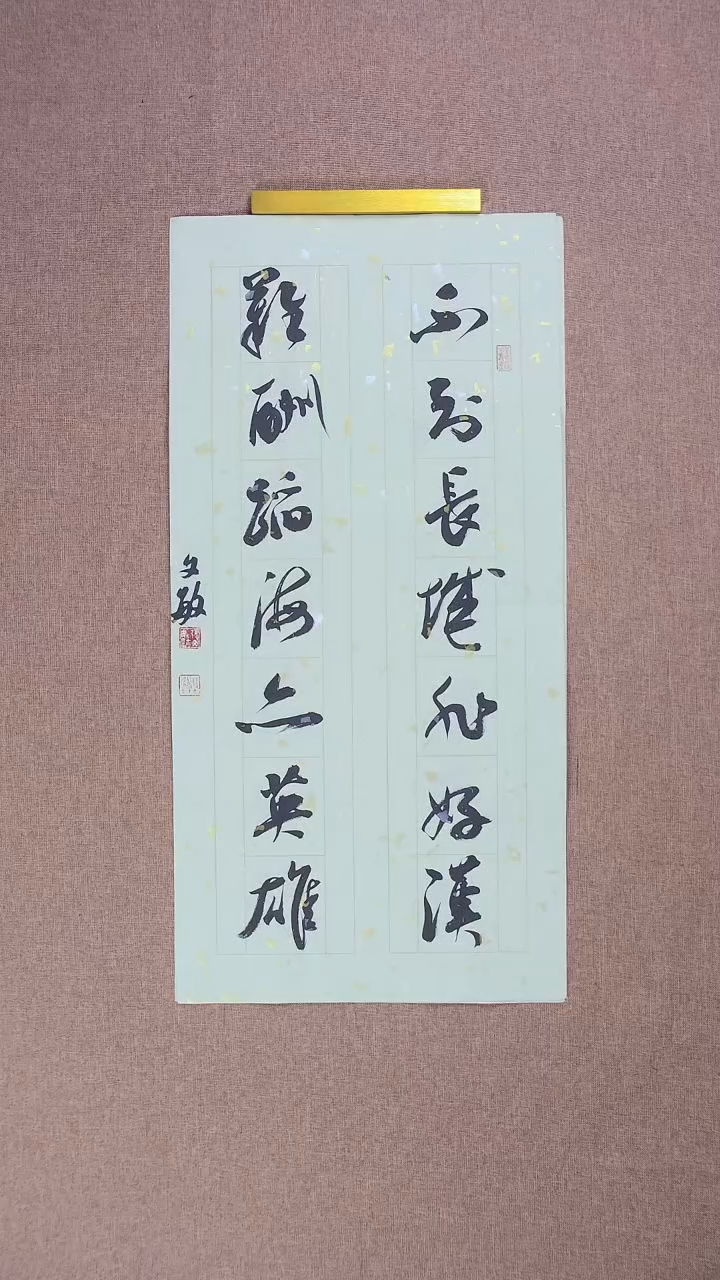 不到長城非好漢
難酬蹈海亦英雄
文敏